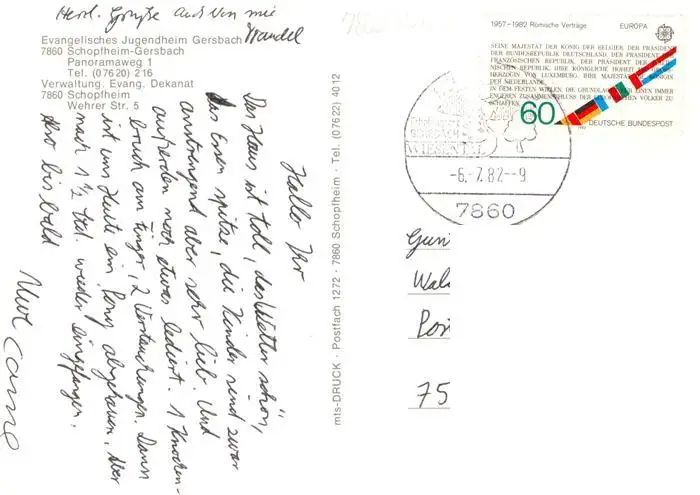 Herzl. Grüße auch von mir
Evangelisches Jugendheim Gersbach
7860 Schopfheim-Gersbach
Panoramaweg 1
Tel. (07620) 216
Verwaltung: Evang. Dekanat
7860 Schopfheim
Wehrer Str. 5
Hallo Ihr
Das Haus ist toll, das Wetter schön,
das Essen spitze, die Kinder sind zwar
anstrengend aber sehr lieb. Und
außerdem noch etwas lediert. 1 Knochen-
bruch am Finger, 2 Verstauchungen. Dann
ist uns Heute ein Pony abgehauen, aber
nach 1 1/2 Std. wieder eingefangen.
Also bis bald
mts-DRUCK · Postfach 1272 · 7860 Schopfheim · Tel. (07622) 4012
1957-1982 Römische Verträge EUROPA
SEINE MAJESTÄT DER KÖNIG DER BELGIER, DER PRÄSIDENT
DER BUNDESREPUBLIK DEUTSCHLAND, DER PRÄSIDENT DER
FRANZÖSISCHEN REPUBLIK, DER PRÄSIDENT DER
NISCHEN REPUBLIK, IHRE KÖNIGLICHE HOHEIT
HERZOGIN VON LUXEMBURG, IHRE MAJESTÄT KÖNIGIN
DER NIEDERLANDE
IN DEM FESTEN WILLEN, DIE GRUNDLAGEN FÜR EINEN IMMER
ENGEREN ZUSAMMENSCHLUSS DER EUROPÄISCHEN VÖLKER ZU
SCHAFFEN
60
DEUTSCHE BUNDESPOST
-6.-7.82--9
7860
75